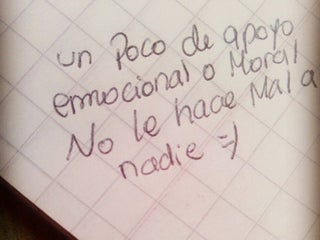 un Poco de apoyo
emocional o Moral
No le hace Mal a
nadie =)